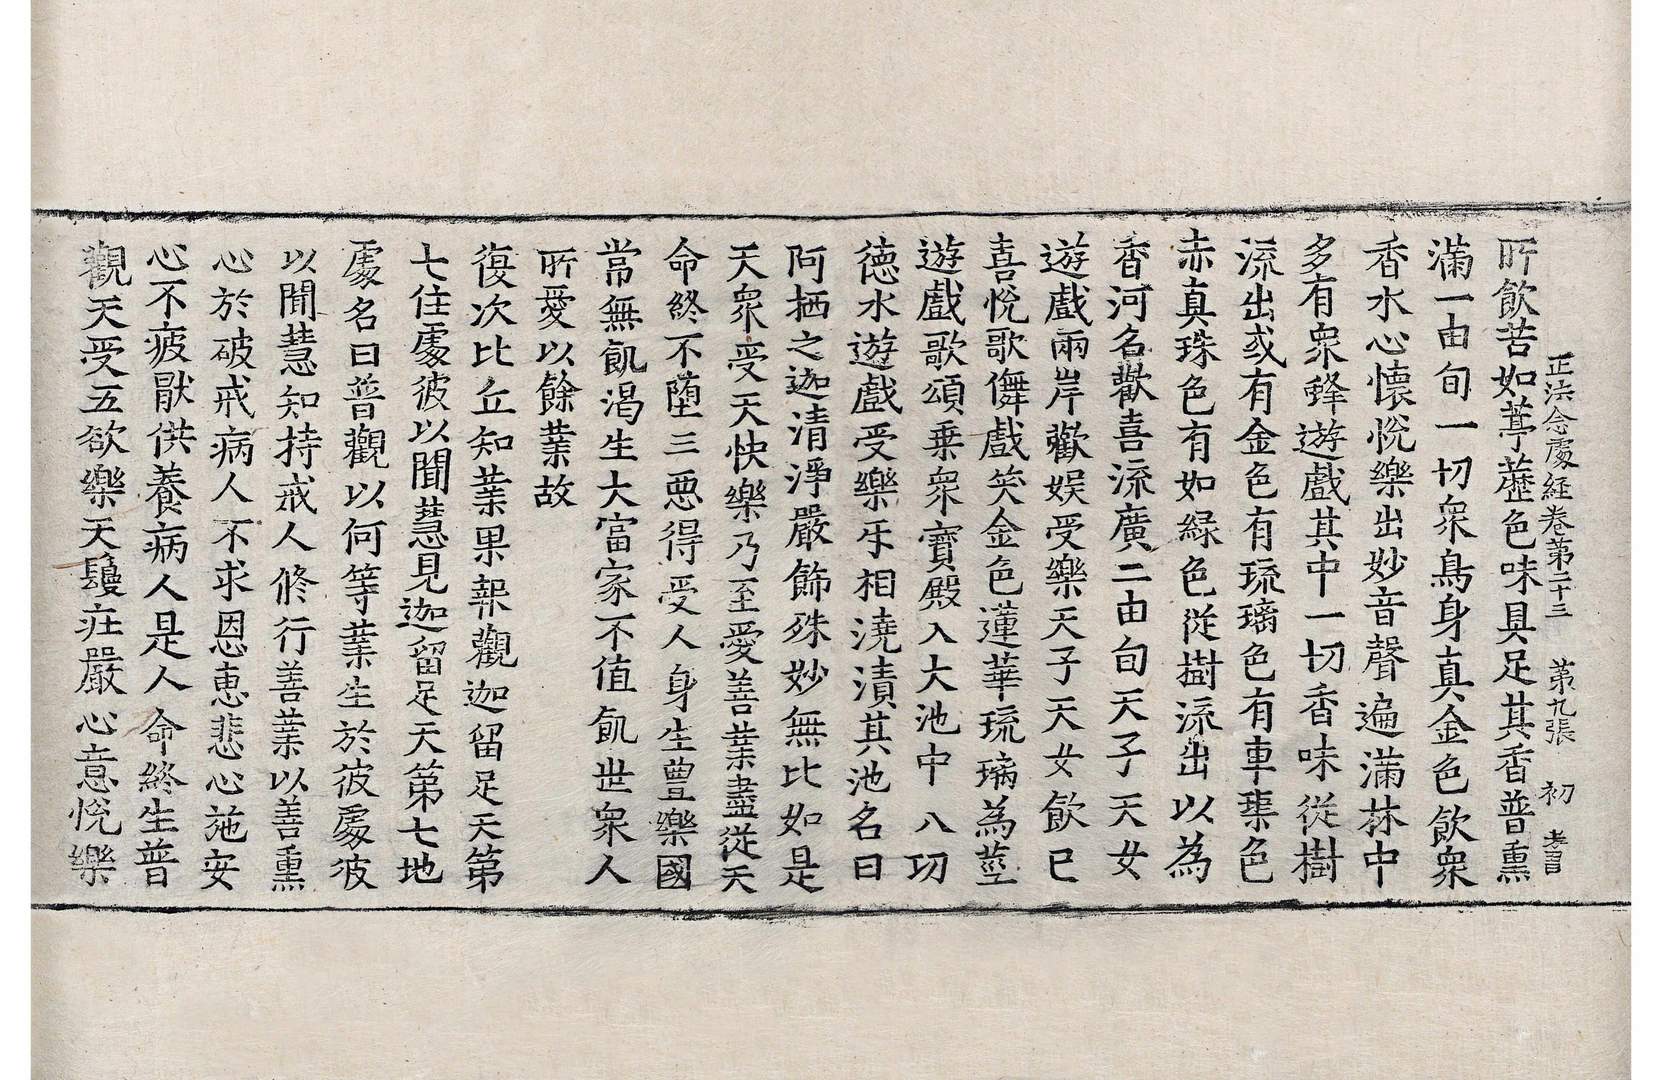 正法念處経卷第二十三 第九張 初 孝目
所飲苦如葶藶色味具足其香普熏
滿一由旬一切衆鳥身真金色飲衆
香水心懷悅樂出妙音聲遍滿林中
多有衆蜂遊戲其中一切香味從樹
流出或有金色有琉璃色有車𤦲色
赤真珠色有如緑色從樹流出以為
香河名歡喜流廣二由旬天子天女
遊戲兩岸歡娱受樂天子天女飲已
喜悅歌儛戲笑金色蓮華琉璃為莖
遊戲歌頌乗衆寶殿入大池中八功
德水遊戲受樂牙相澆漬其池名曰
阿栖之迦清淨嚴飾殊妙無比如是
天衆受天快樂乃至愛善業盡從天
命終不墮三惡得受人身生豊樂國
常無飢渴生大富家不值飢世衆人
所愛以餘業故
復次比丘知業果報觀迦留足天第
七住處彼以聞慧見迦留足天第七地
處名曰普觀以何等業生於彼處彼
以聞慧知持戒人修行善業以善熏
心於破戒病人不求恩恵悲心施安
心不疲猒供養病人是人命終生普
觀天受五欲樂天鬘莊嚴心意悅樂